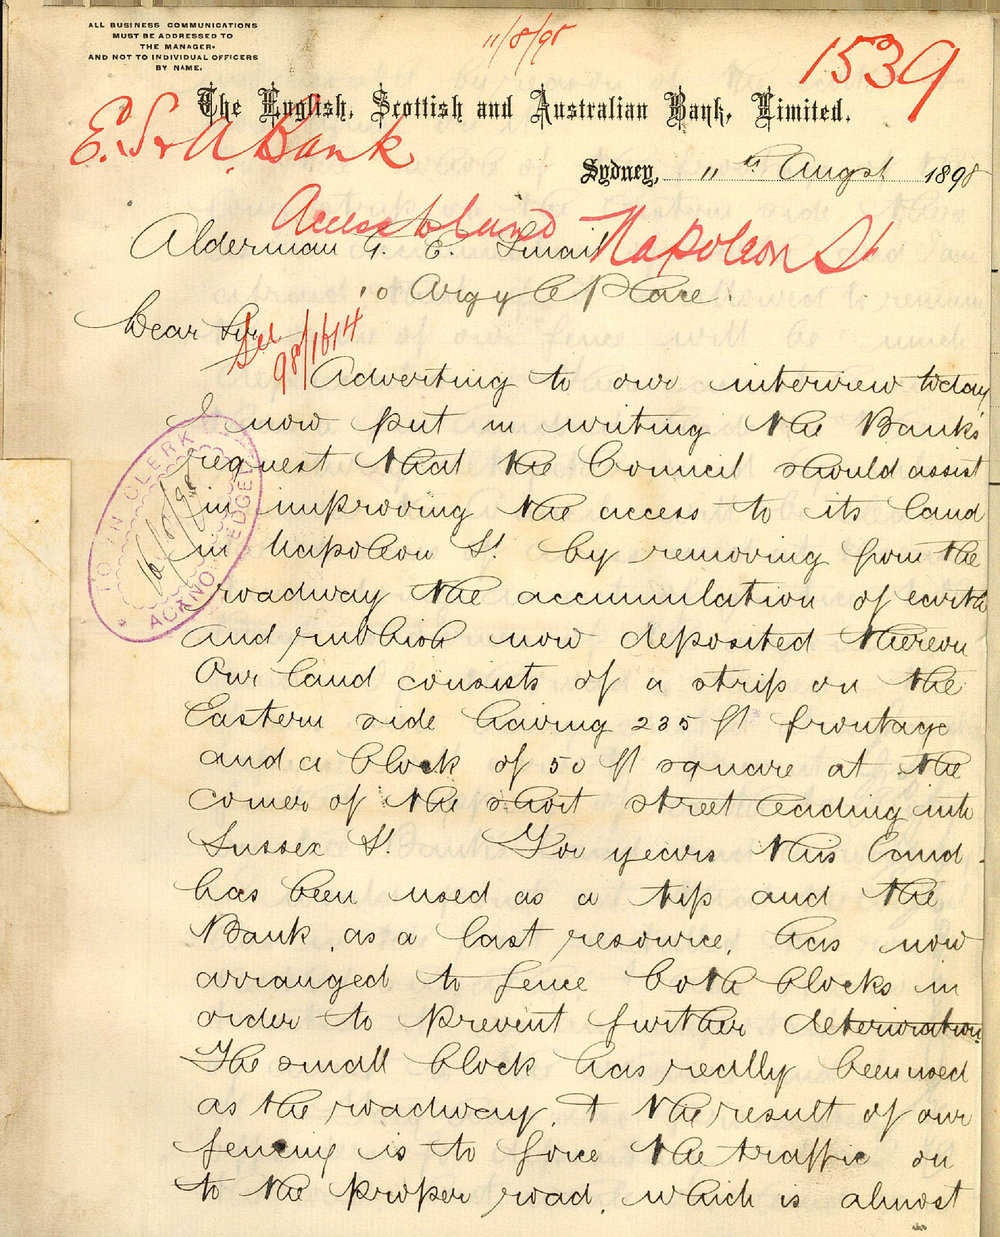 ALL BUSINESS COMMUNICATIONS
MUST BE ADDRESSED TO
THE MANAGER.
AND NOT TO INDIVIDUAL OFFICERS
BY NAME.
11/8/98
1539
The English, Scottish and Australian Bank, Limited.
E. S. & A. Bank
Sydney, 11th August 1898
Access to Land Napoleon St
Alderman G. E. Smail
10 Argyle Place.
Dear Sir
98/1614
Adverting to our interview today
I now put in writing the Banks
request that the Council should assist
in improving the access to its land
in Napoleon St. by removing from the
roadway the accumulation of earth
and rubbish now deposited thereon
Our land consists of a strip on the
Eastern side having 235 ft frontage
and a block of 50 ft square at the
corner of the short street leading into
Sussex St. For years this land
has been used as a tip and the
Bank, as a last resource, has now
arranged to fence both blocks in
order to prevent further deterioration
The small block has really been used
as the roadway, & the result of our
fencing is to force the traffic on
to the proper road, which is almost
TOWN CLERK
16/8/98
ACKNOWLEDGED